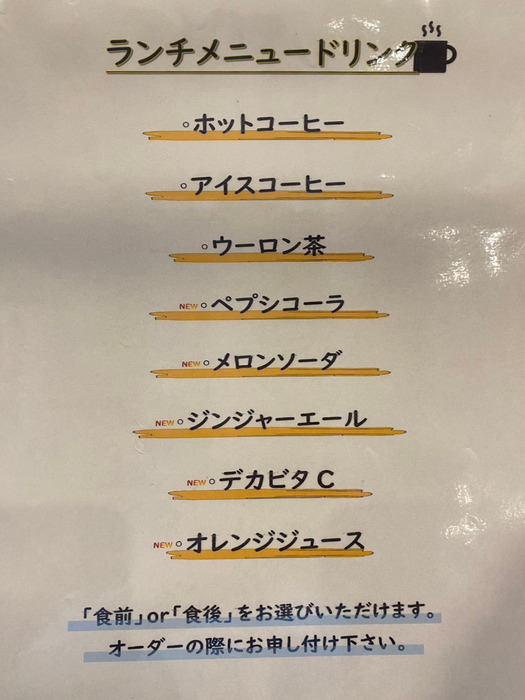 ランチメニュードリンク
○ホットコーヒー
○アイスコーヒー
○ウーロン茶
NEW○ペプシコーラ
NEW○メロンソーダ
NEW○ジンジャーエール
NEW○デカビタC
NEW○オレンジジュース
「食前」or「食後」をお選びいただけます。
オーダーの際にお申し付け下さい。